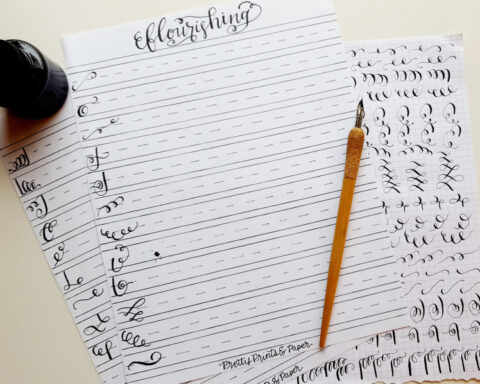 flourishing
Pretty Prints & Paper
& PAPER